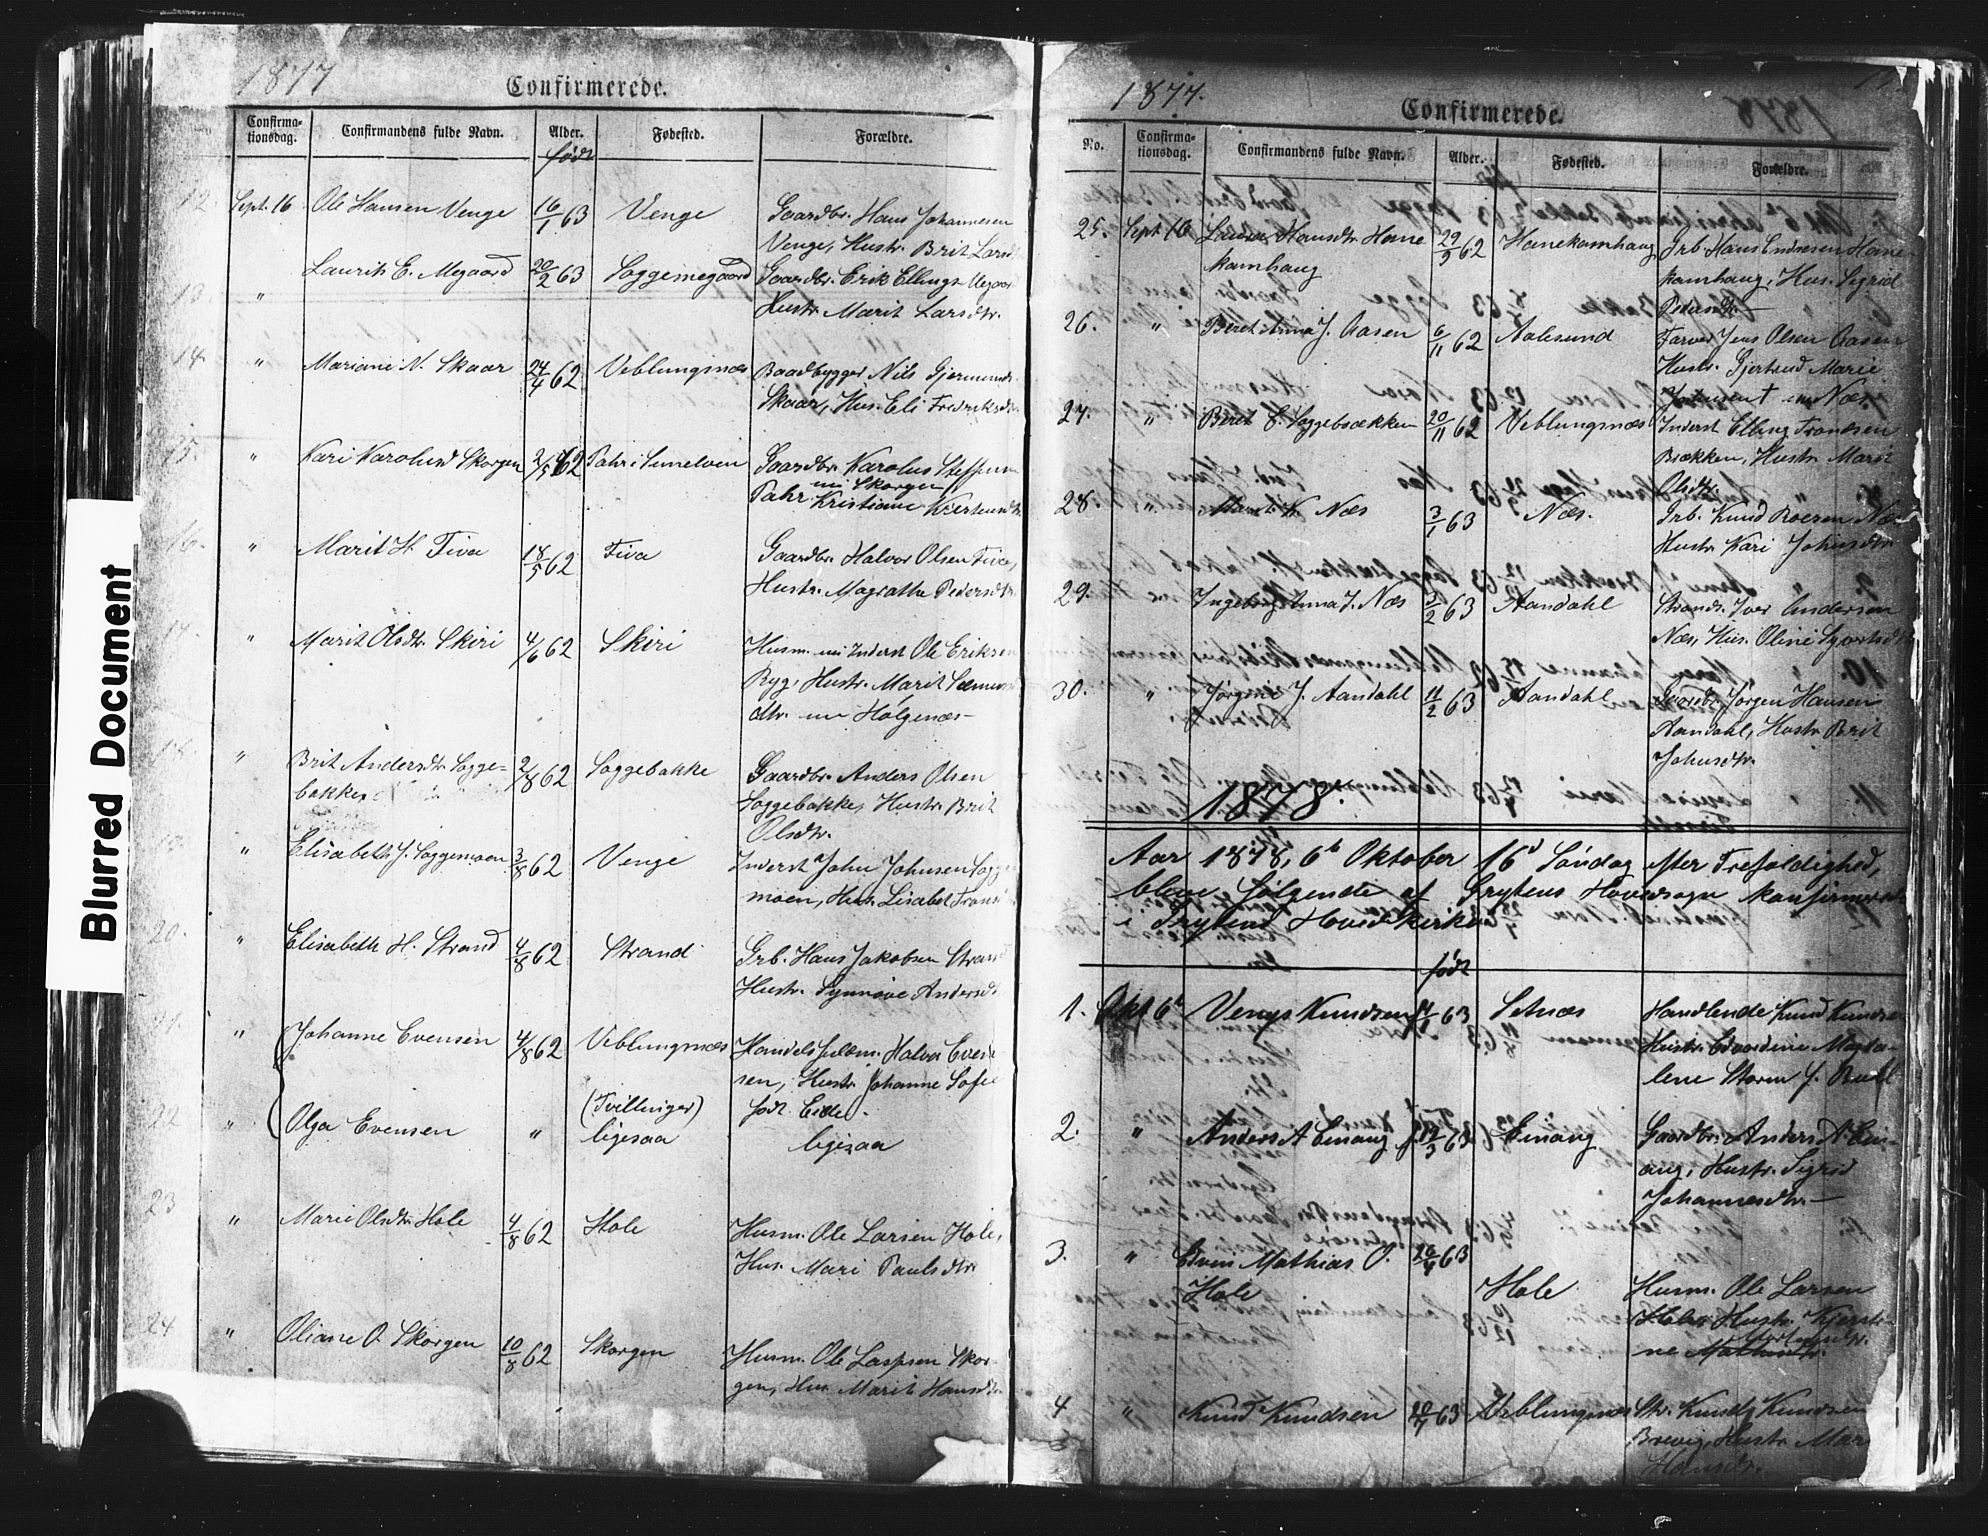 Blurred Document
1877
Confirmerede.
Confirma-
tionsdag.
Confirmandens fulde Navn.
Alder.
født
Fødested.
Forældre.
12. Sept. 16 Ole Hansen Venge 16/1 63 Venge Gaardbr. Hans Johannesen
Venge, Hustr. Brit Larsd
13. " Laurits E. Megaard 20/2 63 Soggemegaard Gaardbr. Erik Ellings. Megaar
Hustr. Marit Larsdtr.
14. " Mariane N. Skaar 24/4 62 Veblungsnæs Baadbygger Nils Gjermunds.
Skaar, Hus. Eli Fredriksdtr
15. " Kari Karolusd Skorgen 2/5 62 Pahr i Sunelven Gaardbr. Karolus Steffensen
Pahr nu Skorgen Kristiane
16. " Marit H. Fiva 18/5 62 Fiva Gaardbr. Halvor Olsen Fiva,
Hustr. Magrathe Pedersdtr.
17. " Marit Olsdtr. Skiri 4/6 62 Skiri Husm. nu Inderst Ole Eriksen
Byg, Hustr. Marit
dtr. nu Holgenæs-
18. " Brit Andersdtr. Sogge- 2/8 62 Soggebakke Gaardbr. Anders Olsen
bakke Soggebakke, Hustr. Brit
Olsdtr.
19. " Elisabeth J. Soggemoen 3/8 62 Venge Inderst John Johnsen Sogge
moen, Hus. Lisabet
20. " Elisabeth H. Strand 4/8 62 Strand Grb. Hans Jakobsen Strand
Hustr. Synnøve Andersdt
21. " Johanne Evensen 4/8 62 Veblungsnæs Handelsfuldm. Halvor Even
sen, Hustr. Johanne Sofie
(Tvillinger) født Eide.
22 " Olga Evensen " ligesaa ligesaa
23 " Marie Olsdtr. Hole 4/8 62 Hole Husm. Ole Larsen Hole,
Hus. Mari Paulsdtr.
24 " Oliane O. Skorgen 10/8 62 Skorgen Husm. Ole Laspsen Skor-
gen, Hus. Marit Hansdtr
1877.
Confirmerede.
1878
No.
Confirma-
tionsdag.
Confirmandens fulde Navn.
Alder.
Fødested.
Forældre.
25. Sept 16 Laura Hansdtr. Hane 29/9 62 Hanekamhaug Grb. Hans Endresen Hane
kamhaug kamhaug, Hus. Sigrid
Pedersdtr.
26. " Beret Anna J. Aasen 6/11 62 Aalesund Farver Jens Olsen Aasen
Hustr. Gjertrud Marie
Johnsen † nu Næs.
27. " Beret E. Soggebrækken 20/11 62 Veblungsnæs Inderst Elling Trondsen
Brækken, Hustr. Marit
Olsdtr.
28. " Marit K. Næs 3/1 63 Næs. Grb. Knud Roersen Næs
Hustr. Kari Johnsdtr.
29. " Ingeborg Anna J. Næs 3/2 63 Aandahl Strands. Iver Andersen
Næs, Hus. Oline
30. " Jørgine J. Aandahl 11/2 63 Aandahl Gaardbr. Jørgen Hansen
Aandahl, Hustr. Brit
Johnsdtr.
1878.
Aar 1878, 6te Oktober 16d Søndag efter Trefoldighed,
bleve følgende af Grytens Hovedsogn konfirmerede
i Grytens Hovedkirke
født
1. Okt 6te Venys Knudsen 63 Setnæs Handlende Knud Knudsen
Hustr. Edvardine Magda-
lene Storm f. Bull
2. " Anders A Einang 19/3 63 Einang Gaardbr. Anders A. Ein-
ang, Hustr. Sigrid
Johannesdtr.
3. " Even Mathias O. 26/4 63
Hole Hole Husm. Ole Larsen
Hole, Hustr. Kjersti-
ne
4 " Knud Knudsen 20/4 63 Veblungsnæs Str. Knud Knudsen
Brevig, Hustr Mar
Hansdtr.